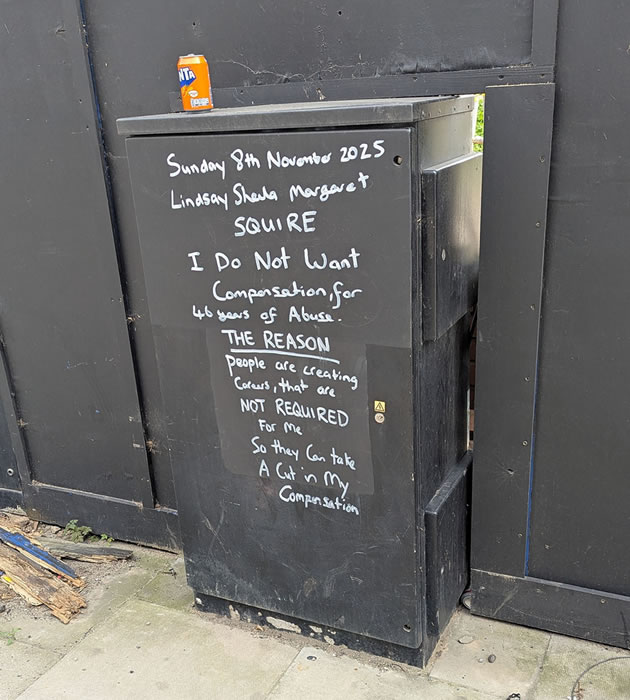 NTA
Sunday 8th November 2025
Lindsay Sheila Margaret
SQUIRE
I Do Not Want
Compensation, for
46 years of Abuse.
THE REASON
People are creating
Careers, that are
NOT REQUIRED
For Me
So they Can take
A Cut in My
Compensation